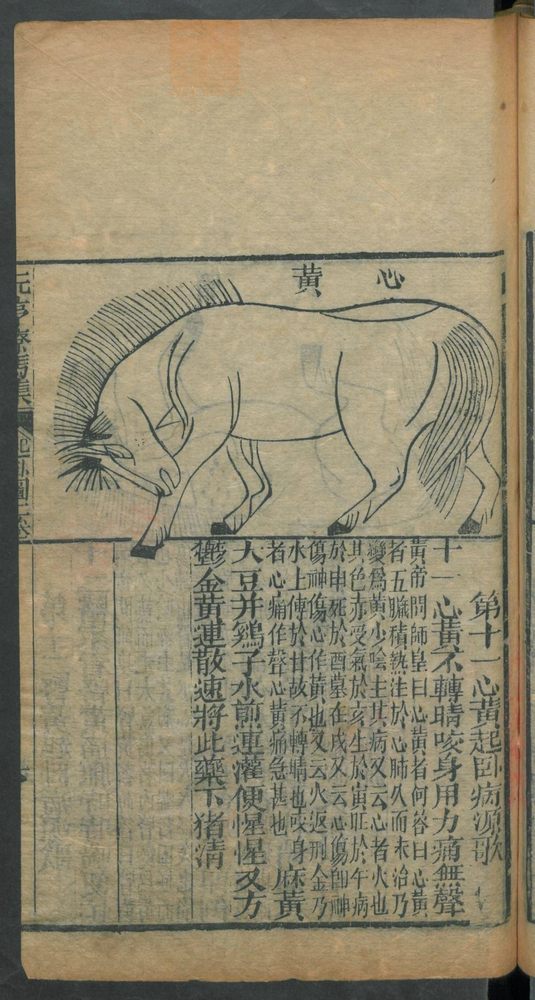 心黃
第十一心黃起卧病源歌
十一心黃不轉睛咬身用力痛無聲
黃帝問師皇曰心黃者何答曰心黃
者五臟積熱注於心肺久而未治乃
變爲黃少陰主其病又云心者火也
其色赤受氣於亥生於寅旺於午病
於申死於酉墓在戌又云心傷卽神
傷神傷心作黃也又云火返刑金乃
水上傳於甘故不轉睛也咬身
者心痛作聲心黃痛急甚也
麻黃
大豆并鷄子水煎連灌便惺惺又方
鬱金黃連散速將此藥下猪清
元亨療馬集
起卧圖